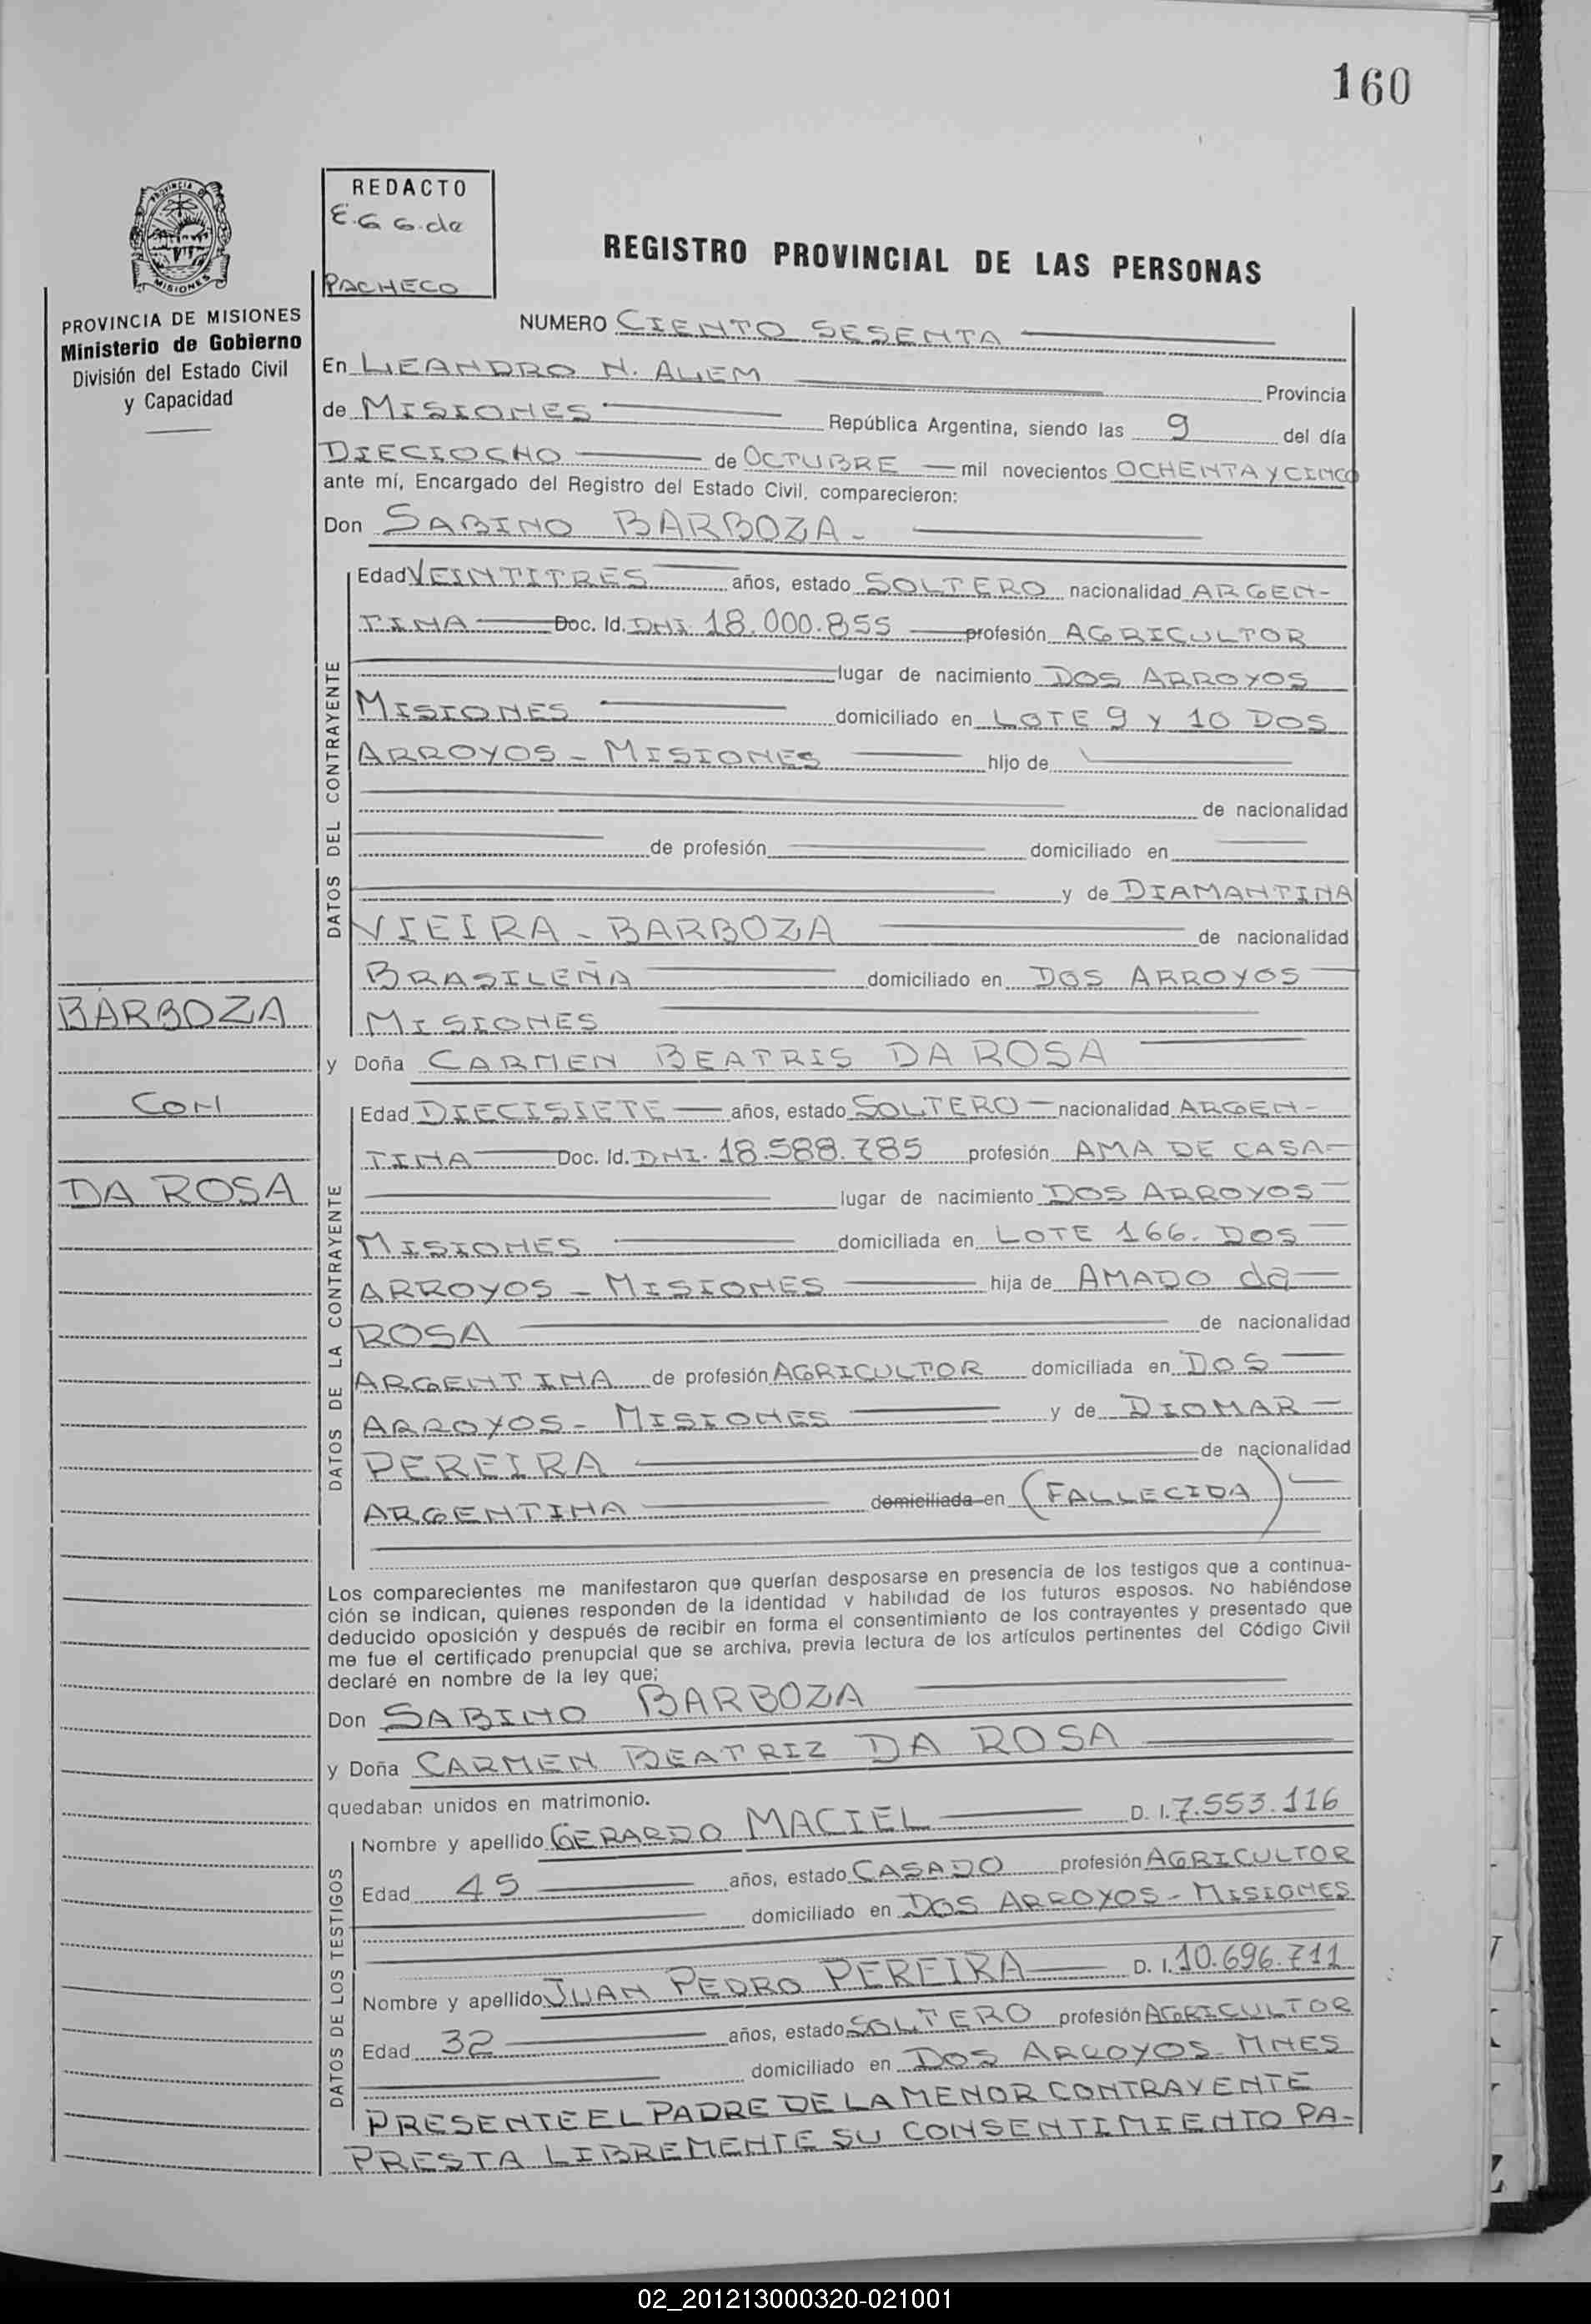 160
PROVINCIA DE
MISIONES
PROVINCIA DE MISIONES
Ministerio de Gobierno
División del Estado Civil
y Capacidad
REDACTO
E. G G. de
PACHECO
REGISTRO PROVINCIAL DE LAS PERSONAS
NUMERO CIENTO SESENTA
En LEANDRO N. ALEM Provincia
de MISIONES República Argentina, siendo las 9 del día
DIECIOCHO de OCTUBRE mil novecientos OCHENTA Y CINCO
ante mí, Encargado del Registro del Estado Civil, comparecieron:
Don SABINO BARBOZA.
DATOS DEL CONTRAYENTE
Edad VEINTITRES años, estado SOLTERO nacionalidad ARGEN-
TINA Doc. Id. DNI 18.000.855 profesión AGRICULTOR
lugar de nacimiento DOS ARROYOS
MISIONES domiciliado en LOTE 9 y 10 DOS
ARROYOS - MISIONES hijo de
de nacionalidad
de profesión domiciliado en
y de DIAMANTINA
VIEIRA - BARBOZA de nacionalidad
BRASILEÑA domiciliado en DOS ARROYOS
MISIONES
BARBOZA
CON
DA ROSA
y Doña CARMEN BEATRIS DA ROSA
DATOS DE LA CONTRAYENTE
Edad DIECISIETE años, estado SOLTERO nacionalidad ARGEN-
TINA Doc. Id. DNI. 18.588.785 profesión AMA DE CASA
lugar de nacimiento DOS ARROYOS
MISIONES domiciliada en LOTE 166. DOS
ARROYOS - MISIONES hija de AMADO da
ROSA de nacionalidad
ARGENTINA de profesión AGRICULTOR domiciliada en DOS
ARROYOS - MISIONES y de DIOMAR
PEREIRA de nacionalidad
ARGENTINA domiciliada en (FALLECIDA)
Los comparecientes me manifestaron que querían desposarse en presencia de los testigos que a continua-
ción se indican, quienes responden de la identidad y habilidad de los futuros esposos. No habiéndose
deducido oposición y después de recibir en forma el consentimiento de los contrayentes y presentado que
me fue el certificado prenupcial que se archiva, previa lectura de los artículos pertinentes del Código Civil
declaré en nombre de la ley que;
Don SABINO BARBOZA
y Doña CARMEN BEATRIZ DA ROSA
quedaban unidos en matrimonio.
DATOS DE LOS TESTIGOS
Nombre y apellido GERARDO MACIEL D. I. 7.553.116
Edad 45 años, estado CASADO profesión AGRICULTOR
domiciliado en DOS ARROYOS - MISIONES
Nombre y apellido JUAN PEDRO PEREIRA D. I. 10.696.711
Edad 32 años, estado SOLTERO profesión AGRICULTOR
domiciliado en DOS ARROYOS - MNES
PRESENTE EL PADRE DE LA MENOR CONTRAYENTE
PRESTA LIBREMENTE SU CONSENTIMIENTO PA-
02_201213000320-021001